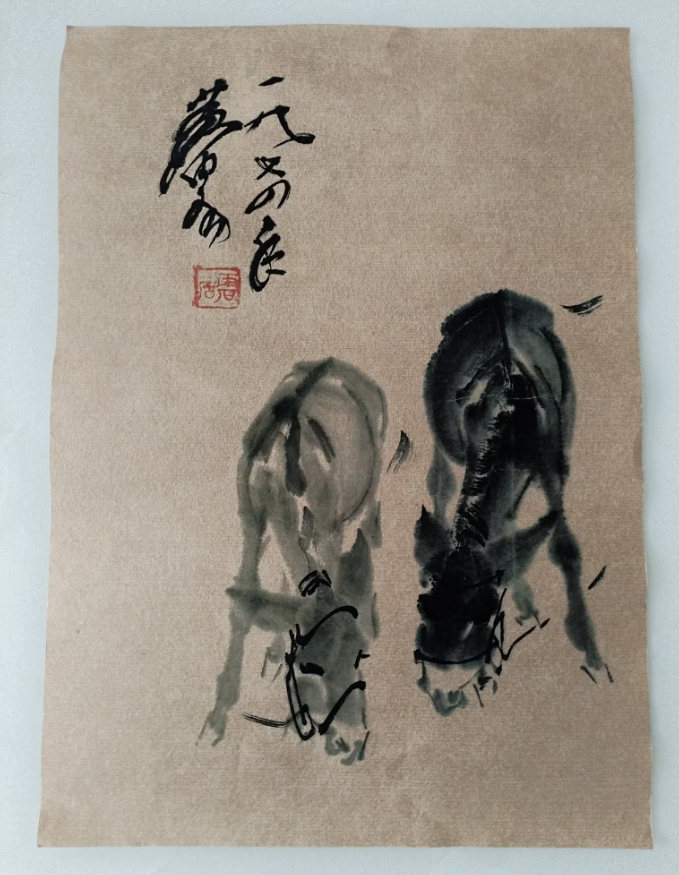 一九七四年
黄胄